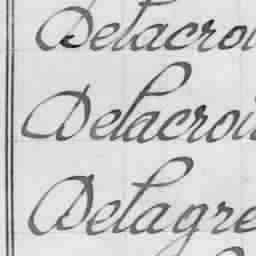 Delacroi
Delacroi
Delagre